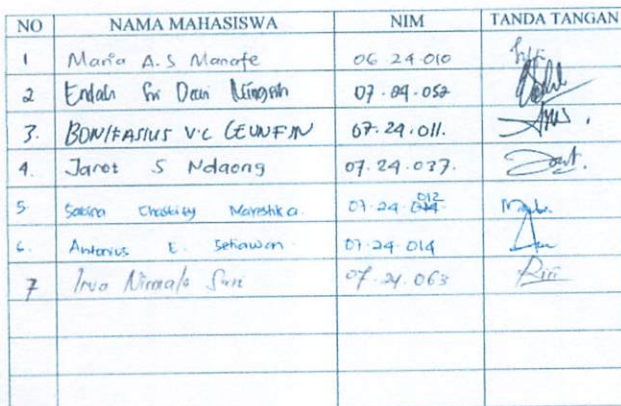 NO NAMA MAHASISWA NIM TANDA TANGAN
1 Maria A.S Manafe 06.24.010
2 Endah Sri Dewi Ningsih 07.24.052
3. BONIFASIUS V.C LEUNFIN 07.24.011.
4. Jarot S Ndaong 07.24.037.
5. Chastity Mareshka 07.24.012
6. Antonius E. Setiawan 07.24.014
7 Nirmala Sari 07.24.063 Riri